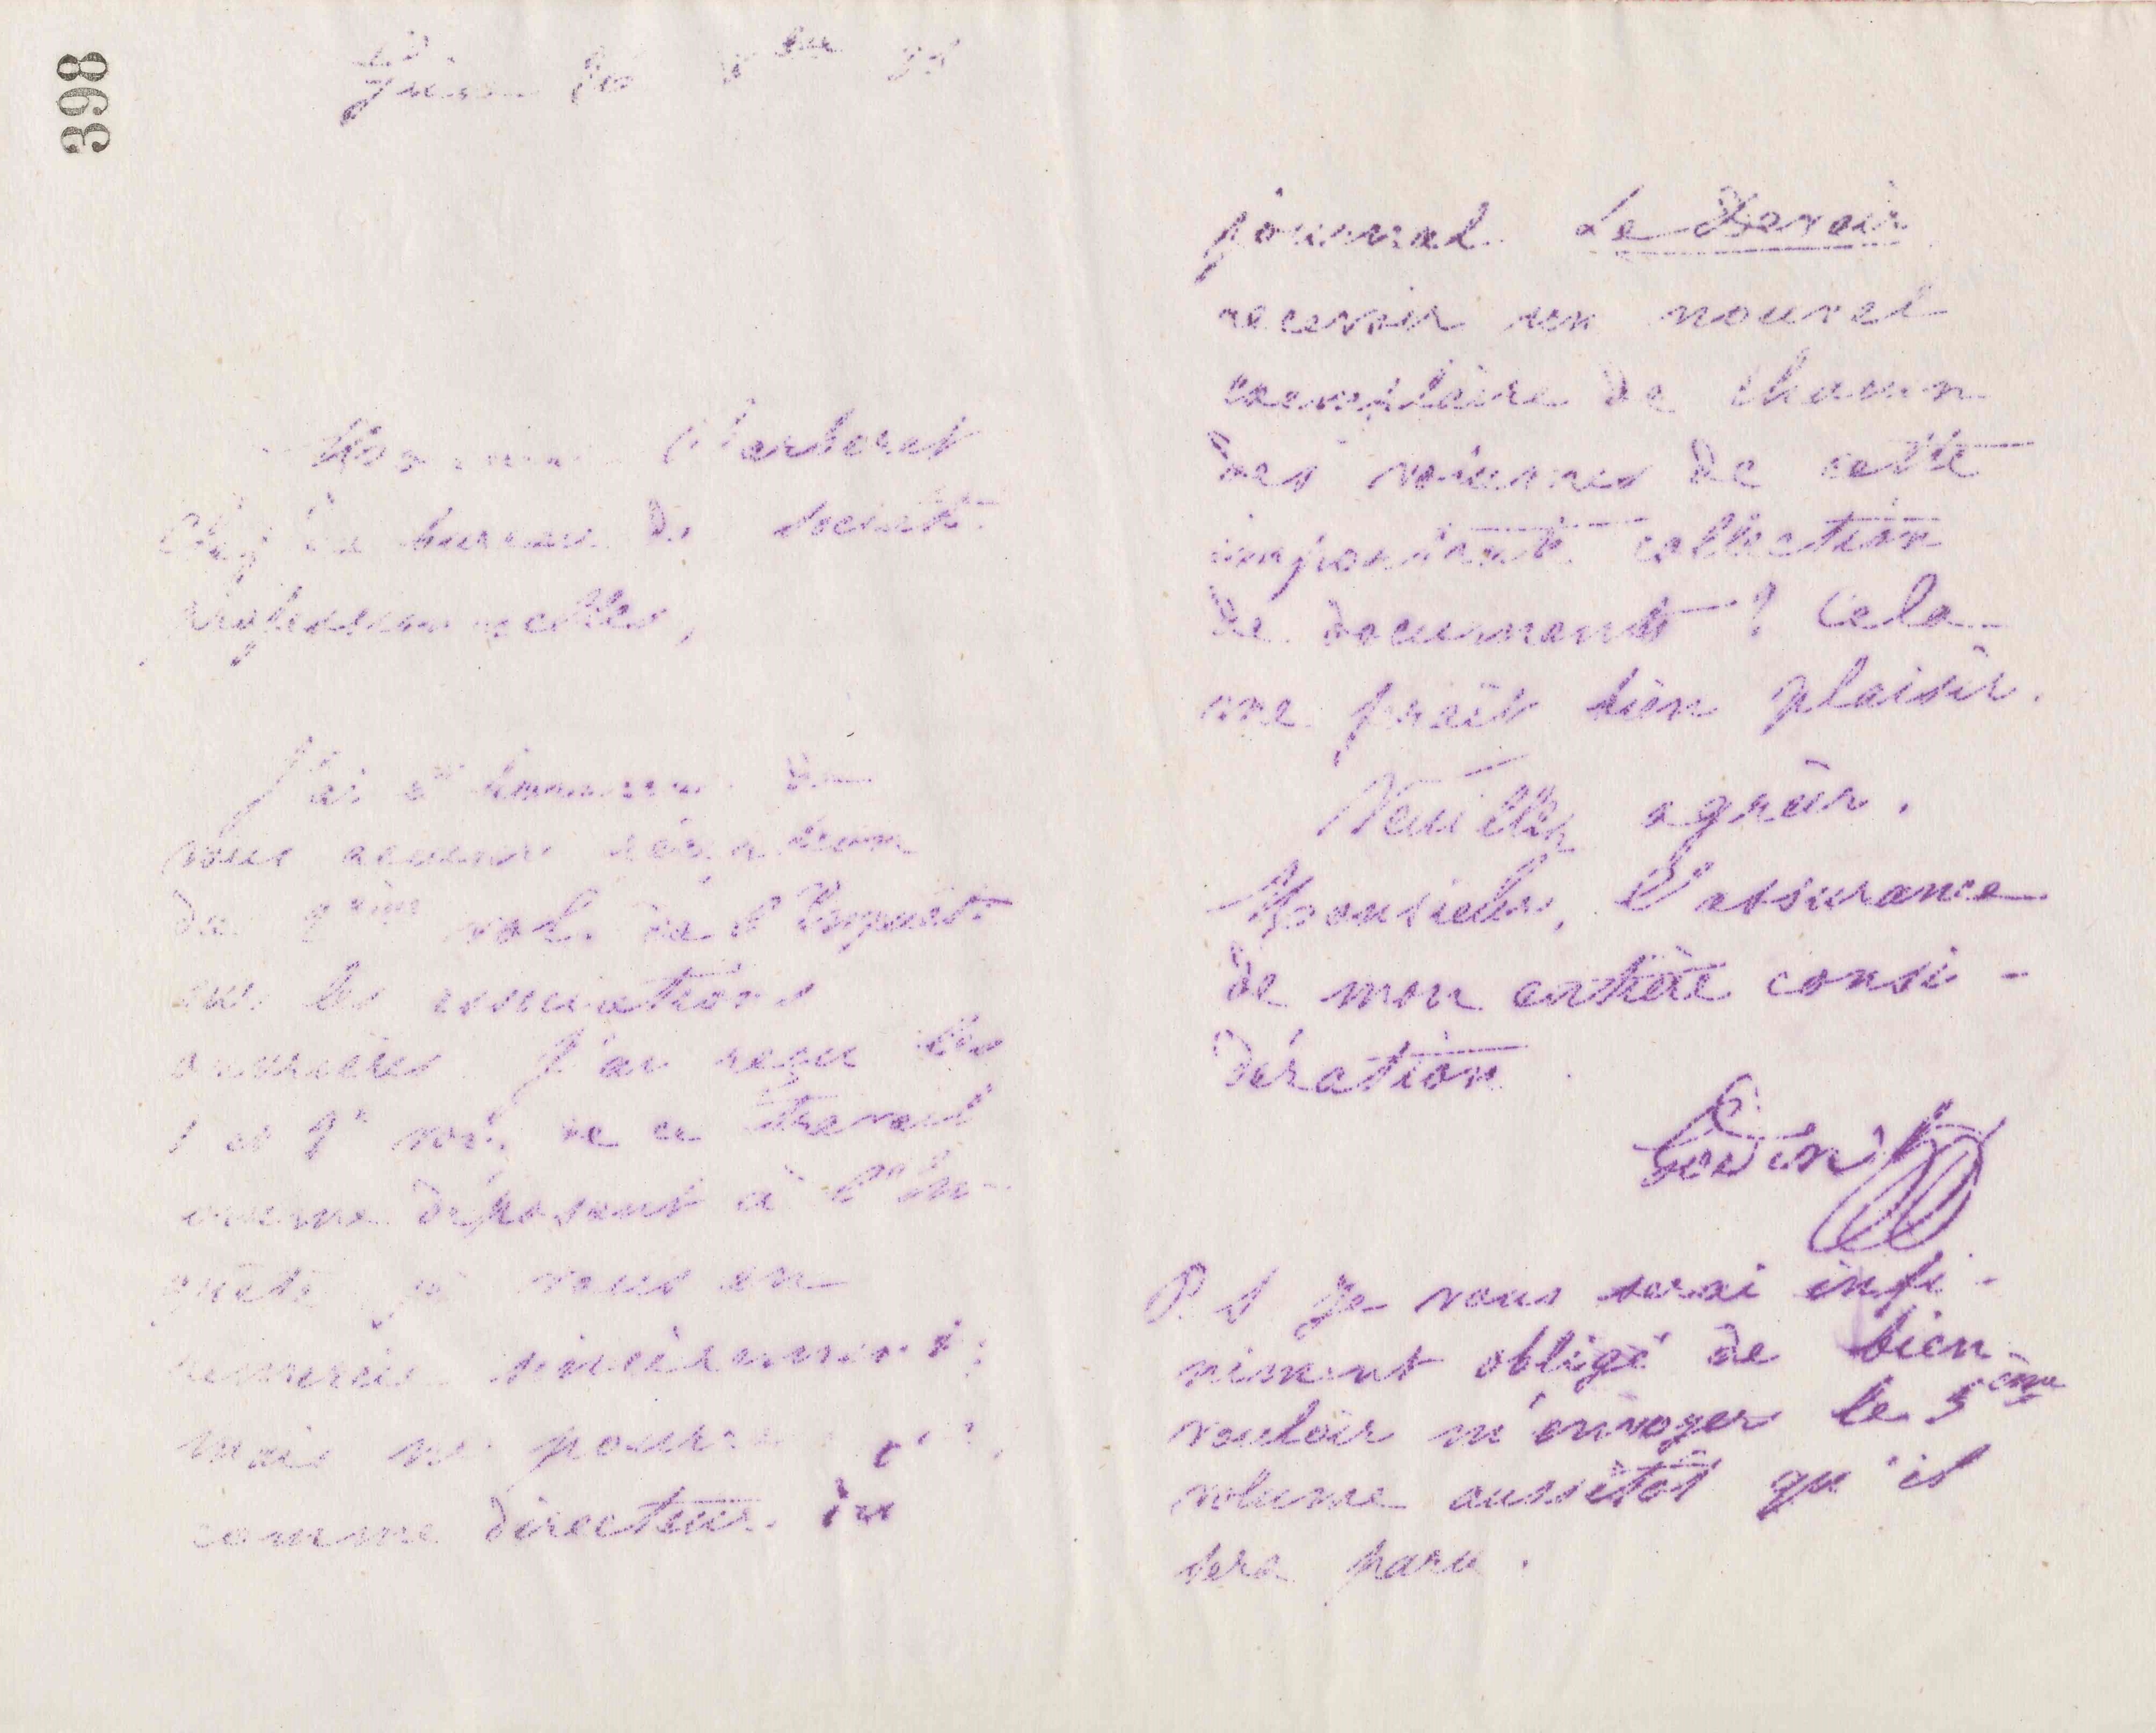 398
Guise
Monsieur Barberet
Chef du bureau de société
professionnelles,
J'ai l'honneur de
vous accuser réception
du vol. de l'Enquête
sur les associations
ouvrières J'ai reçu les
1 et vol. de ce travail
comme déposant à l'En-
quête je vous en
remercie sincèrement;
mais ne pourrai
comme directeur du
journal Le Devoir
recevoir un nouvel
exemplaire de chacun
des volumes de cette
importante collection
de documents ? Cela
me ferait bien plaisir.
Veuillez agréer,
Monsieur, l'assurance
de mon entière consi-
dération
Godin
P. S Je vous serai infi-
niment obligé de bien
vouloir m'envoyer le 5ème
volume aussitôt qu'il
sera paru.